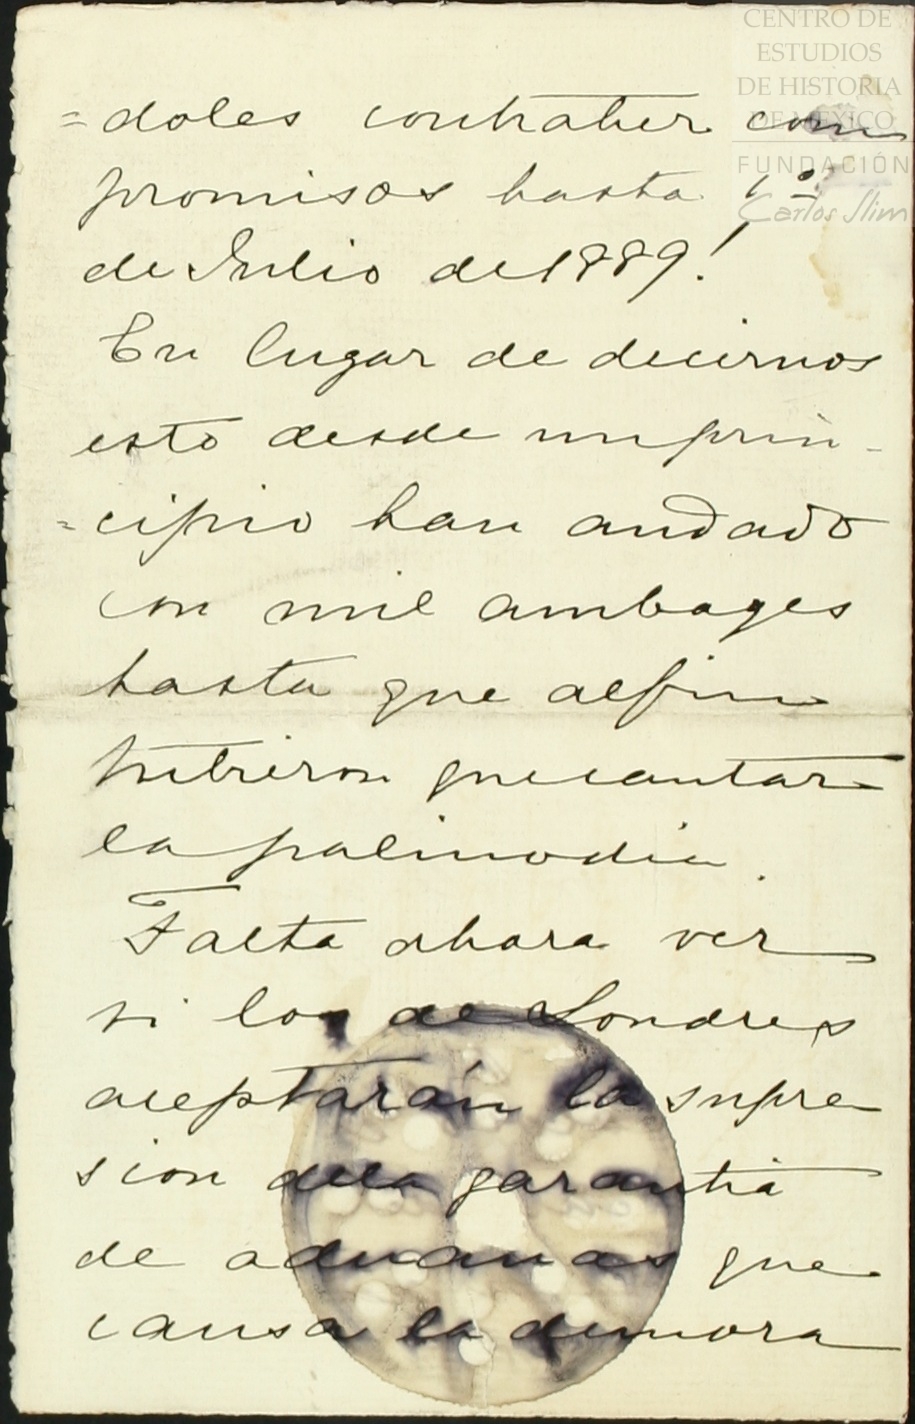 CENTRO DE
ESTUDIOS
DE HISTORIA
DE MÉXICO
FUNDACIÓN
Carlos Slim
=doles contraher com
promisos hasta 1º
de Julio de 1889!
En lugar de decirnos
esto desde un prin-
=cipio han andado
con mil ambages
hasta que al fin
tubieron que cantar
la palinodia.
Falta ahora ver
si los de Londres
aceptarán la supre
sion de la garantia
de aduanas que
causa la demora